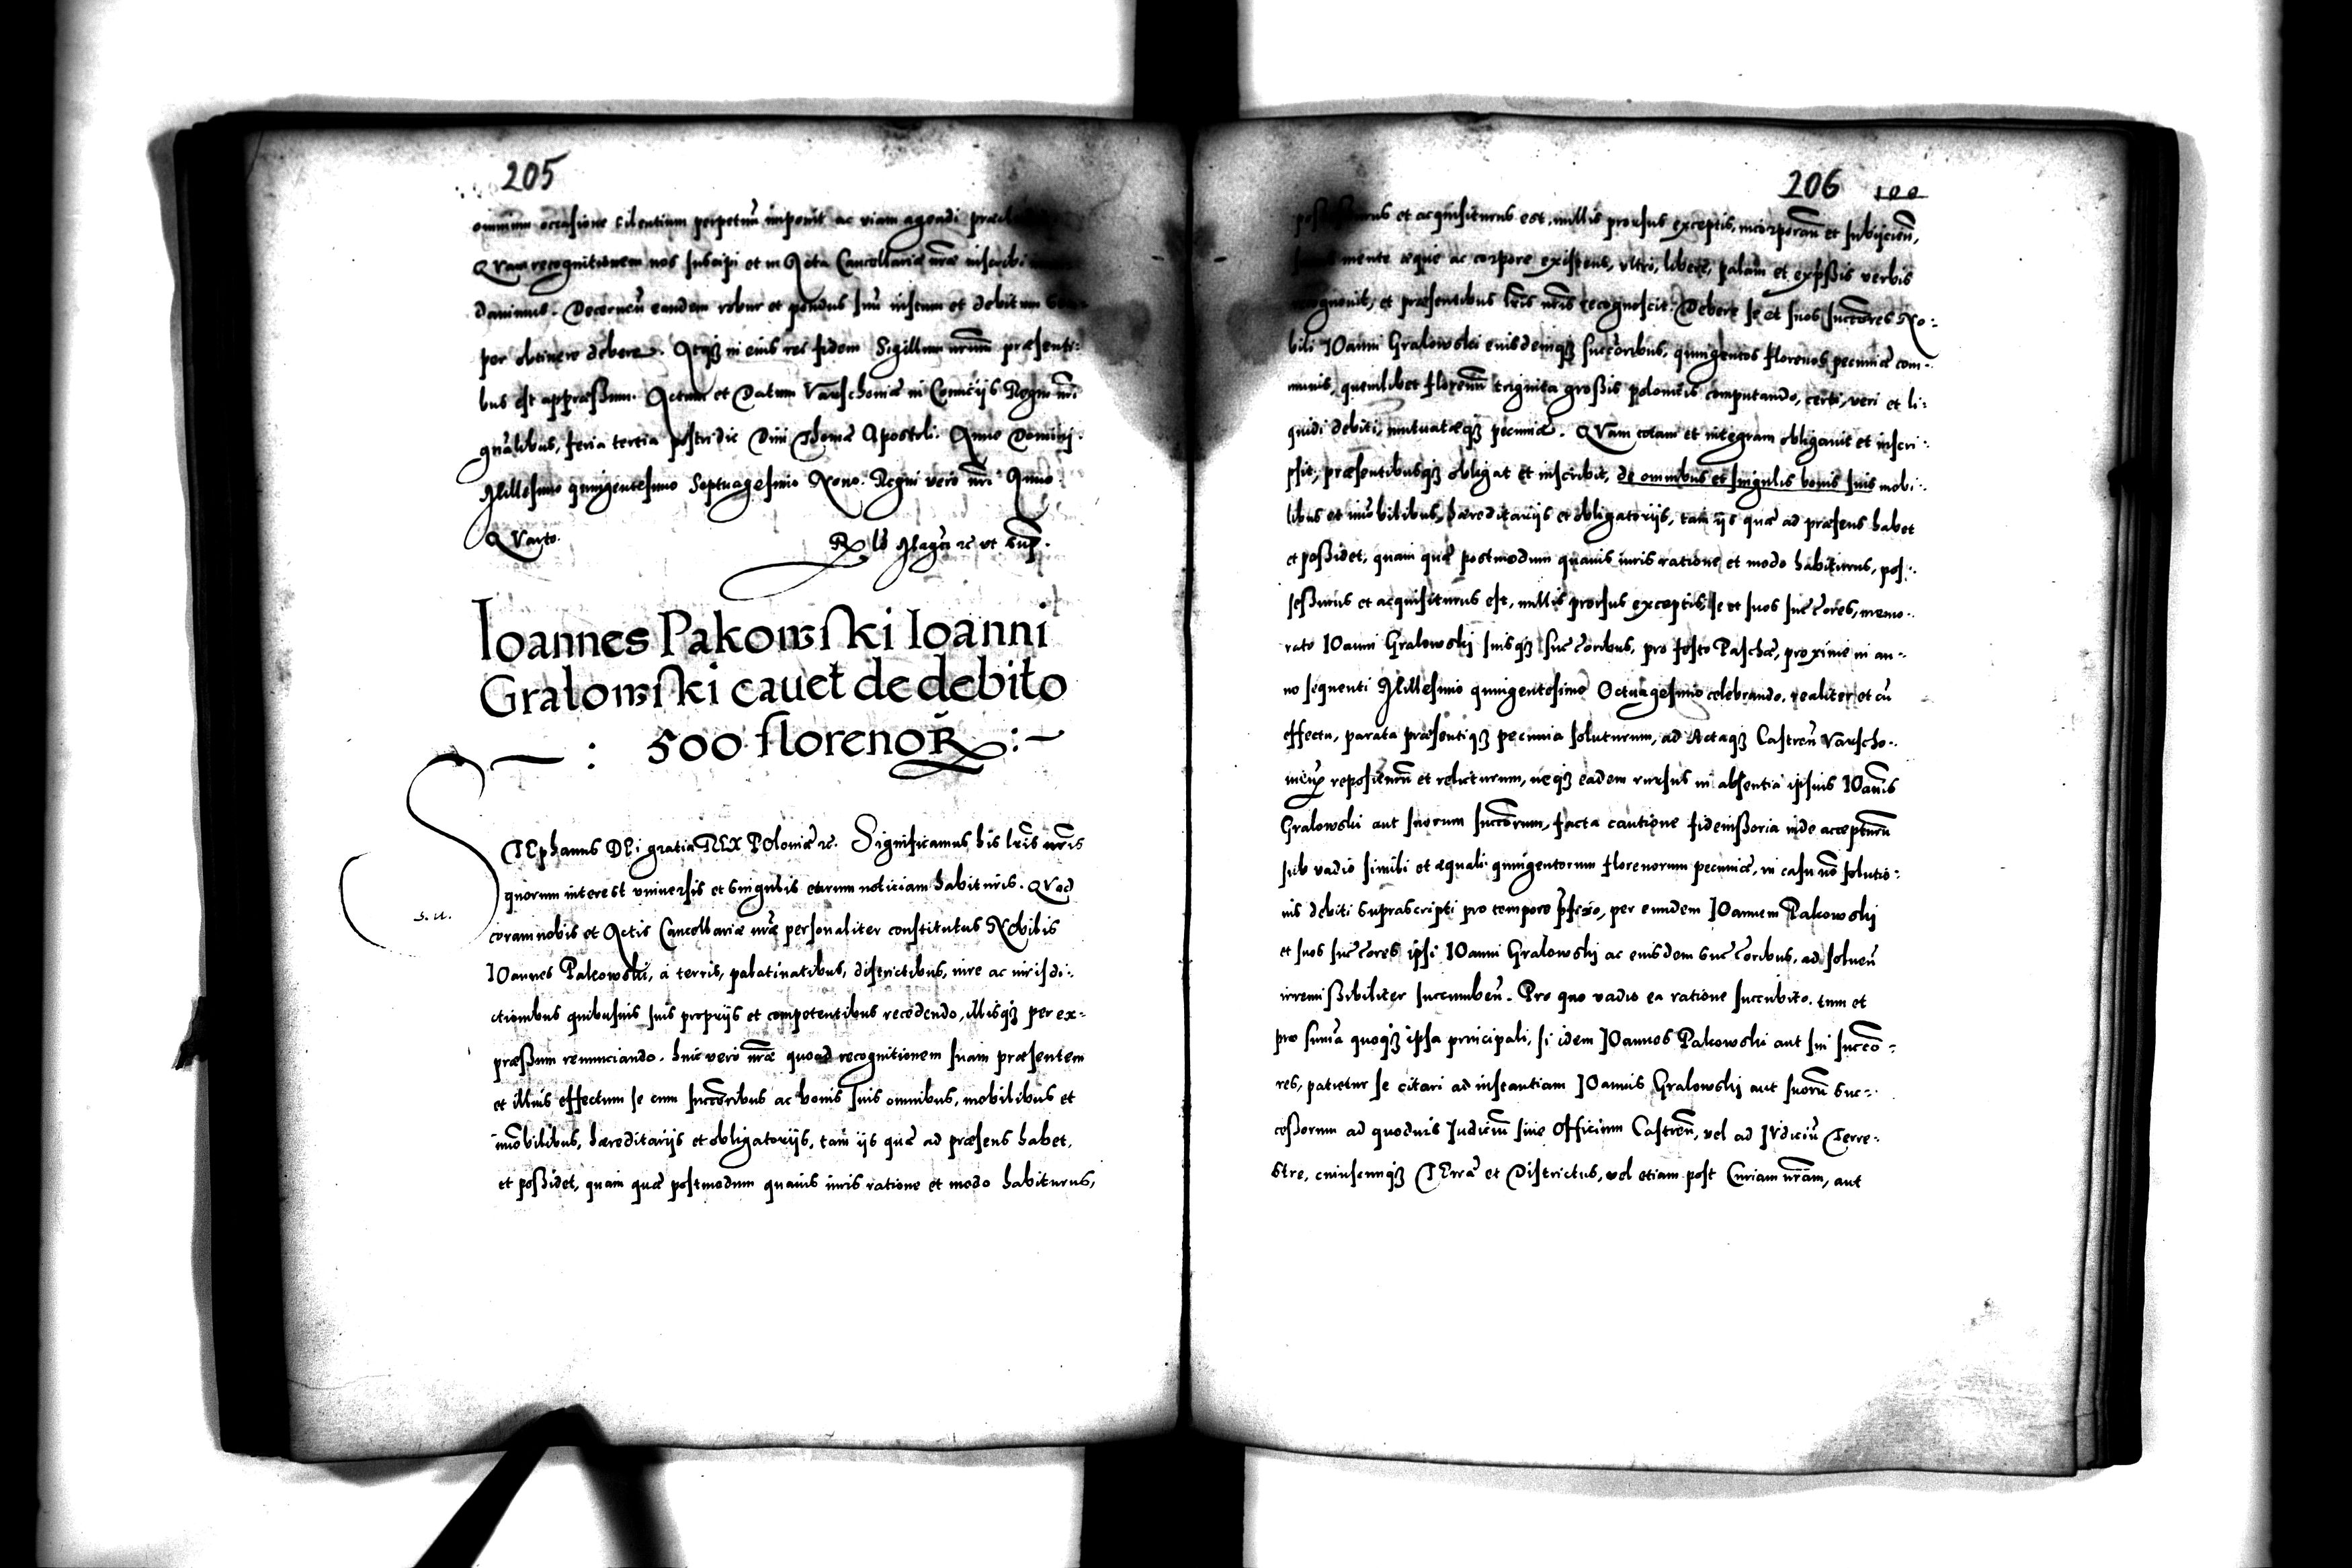 205
omnium occasione silentium perpetuũ imponit ac viam agendi
QVam recognitionem nos suscipi et in Acta Cancellariæ nr̃æ inscribi
davimus. Decernen̄ eandem robur et pondus suũ iustum et debitum sem-
per obtinere debere. Atq3 in eius rei fidem Sigillum nr̃um præsenti:
bus est appræßum. Actum et Datum Varschoviæ in Comitijs Regni nr̃i
gn̄alibus, feria tertia postridie Divi Thomæ Apostoli. Anno Domini.
Millesimo quingentesimo Septuagesimo Nono. Regni vero nr̃i Anno
QVarto. Rl̃o Magci rc ut sup̃.
Ioannes Pakowski Ioanni
Gralowski cauet de debito
: 500 florenoꝝ :~
STEphanus DEi gratia REX POloniæ rc. Significamus his lr̃is nr̃is
quorum interest vniuersis et singulis earum noticiam habituris. QVod
coram nobis et Actis Cancellariæ nr̃æ personaliter constitutus Nobilis
s. u.
IOannes Pakowski, à terris, palatinatibus, districtibus, iure ac iurisdi:
ctionibus quibusuis suis proprijs et competentibus recedendo, illisq3 per ex-
præßum renunciando. huic vero nr̃æ quoad recognitionem suam præsentem
et illius effectum se cum succ̃oribus ac bonis suis omnibus, mobilibus et
im̃obilibus, hæreditarijs et obligatorijs, tam ijs quæ ad præsens habet,
et poßidet, quam quæ postmodum quauis iuris ratione et modo habiturus,
206 100
et acquisiturus est, nullis prorsus exceptis, incorporan̄ et subijcien̄,
mente æque ac corpore existens, vltro, libere, palam et exp̃ßis verbis
recognouit, et præsentibus lr̃is nr̃is recognoscit: Debere se et suos succ̃ores No:
bili IOanni Gralowski eiusdemq3 succ̃oribus, quingentos florenos pecuniæ com-
munis, quemlibet florenũ triginta großis polonicis computando, certi, veri et li:
quidi debiti, mutuatæq3 pecuniæ. QVam totam et integram obligauit et inscri:
psit, præsentibusq3 obligat et inscribit, de omnibus et singulis bonis suis mobi:
libus et im̃obilibus, hæreditarijs et obligatorijs, tam ijs quæ ad præsens habet
et poßidet, quam quæ postmodum quauis iuris ratione et modo habiturus, pos:
seßurus et acquisiturus est, nullis prorsus exceptis, se et suos succ̃ores, memo-
rato IOanni Gralowskj suisq3 succ̃oribus, pro festo Paschæ, proxime in an-
no sequenti Millesimo quingentesimo Octuagesimo celebrando, realiter et cũ
effectu, parata præsentiq3 pecunia soluturum, ad Actaq3 Castren̄ Varscho-
vien̄ repositurũ et relicturum, neq3 eadem rursus in absentia ipsius IOannis
Gralowski aut suorum succ̃orum, facta cautione fideiußoria inde accepturũ
sub vadio simili et æquali quingentorum florenorum pecuniæ, in casu nõ solutio:
nis debiti suprascripti pro tempore p̃fixo, per eundem IOannem Pakowskj
et suos succ̃ores ipsi IOanni Gralowskj ac eiusdem succ̃oribus, ad soluen̄
irremißibiliter succumben̄. Pro quo vadio ea ratione succubito, tum et
pro sum̃a quoq3 ipsa principali, si idem IOannes Pakowski aut sui succ̃o-
res, patietur se citari ad instantiam IOannis Gralowskj aut suorũ suc-
ceßorum ad quoduis Iudiciũ siue Officium Castren̄, vel ad IVdiciũ Terre-
stre, cuiuscunq3 TErræ et Districtus, vel etiam post Curiam nr̃am, aut